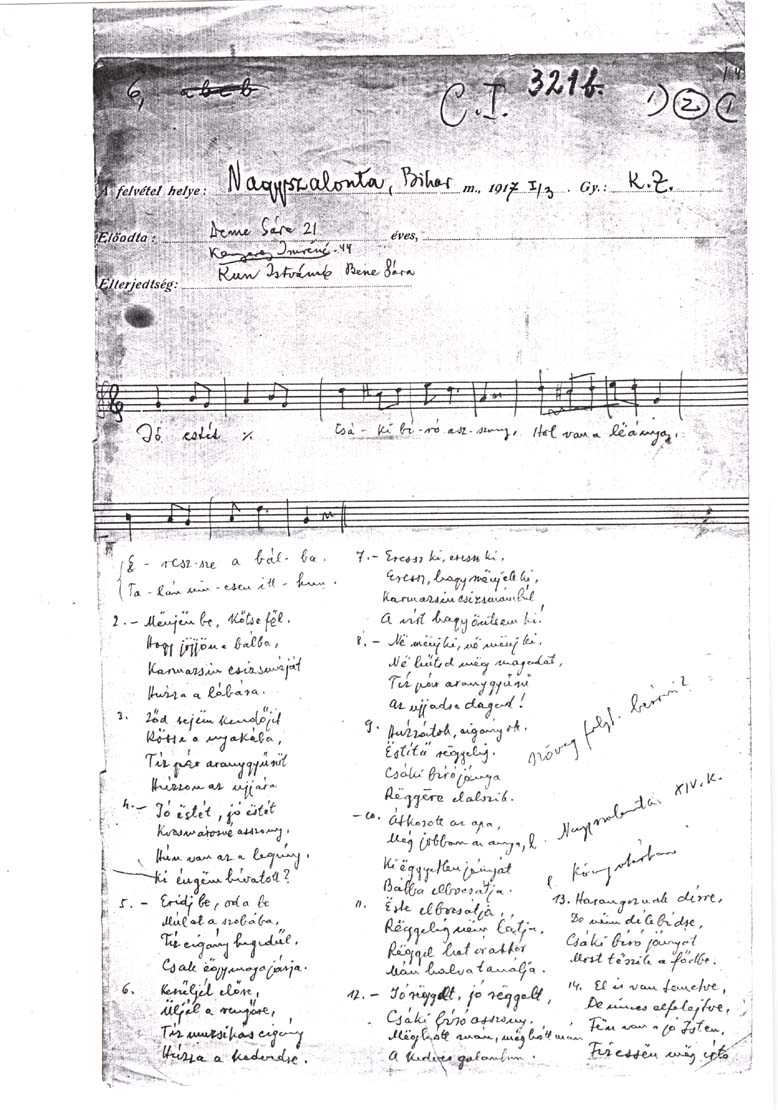 6, abcb
C.I. 321b. 1) 2 1
A felvétel helye: Nagyszalonta, Bihar m., 1917 I/3. Gy.: K.Z.
Előadta: Deme Sára 21 éves,
Imréné 44
Elterjedtség: Kun Istvánné Bene Sára
Jó estét ٪ Csá-ki bi-ró asz-szony, Hol van a lëánya,
E-resz-sze a bál-ba.
Ta-lán nin-csen itt-hun.
2.- Mënjën be, kőtse fël.
Hogy jőjjön a bálba,
Karmazsin csizmáját
Huzza a lábára.
3. Ződ sejëm kendőjit
Kösse a nyakába,
Tíz pár aranygyűrűt
Húzzon az ujjára
4.- Jó estét, jó estét
asszony,
Hun van az a legíny,
Ki éngëm hívatott?
5.- Eridj be, od a be
a szobába,
Tíz cigány hegedűl,
Csak ëggymaga járja.
6. Kerüljél előre,
Üljél a
Tíz muzsikás cigány
Húzza a kedvedre.
7.- Eressz ki, eressz ki,
Eressz, hagy mënjek ki,
Karmazsin csizmámbúl
A vírt hagy öntsem ki!
8.- Në mënj ki, në mënj ki,
Në hűtsd mëg magadat,
Tíz pár aranygyűrű
Az ujjadra dagad!
9. Huzzátok, cigányok.
Estítű rëggelig.
Csáki bíró jánya
Rëggére elalszik.
-10. Átkozott az apa,
Még jobban az anya,
Ki ëggyetlen jányát
Bálba elbocsátja.
11. Este elbocsátja,
Rëggelig nëm látja,
Rëggel hat órakkor
Mán halva tanálja.
12.- Jó rëggelt, jó rëggelt,
Csáki bíró asszony.
Mëghótt mán, mëghótt mán
A kedves galambom.
13. Harangoznak dérre,
De nëm délebédre,
Csáki bíró jányát
Most tészik a főďbe.
14. El is van temetve,
De nincs elfelejtve,
Fën van a jó Isten,
Fizessën mëg írte
szöveg folyt. beírni?
l. Nagyszalontai XIV.k.
l könyvtárban